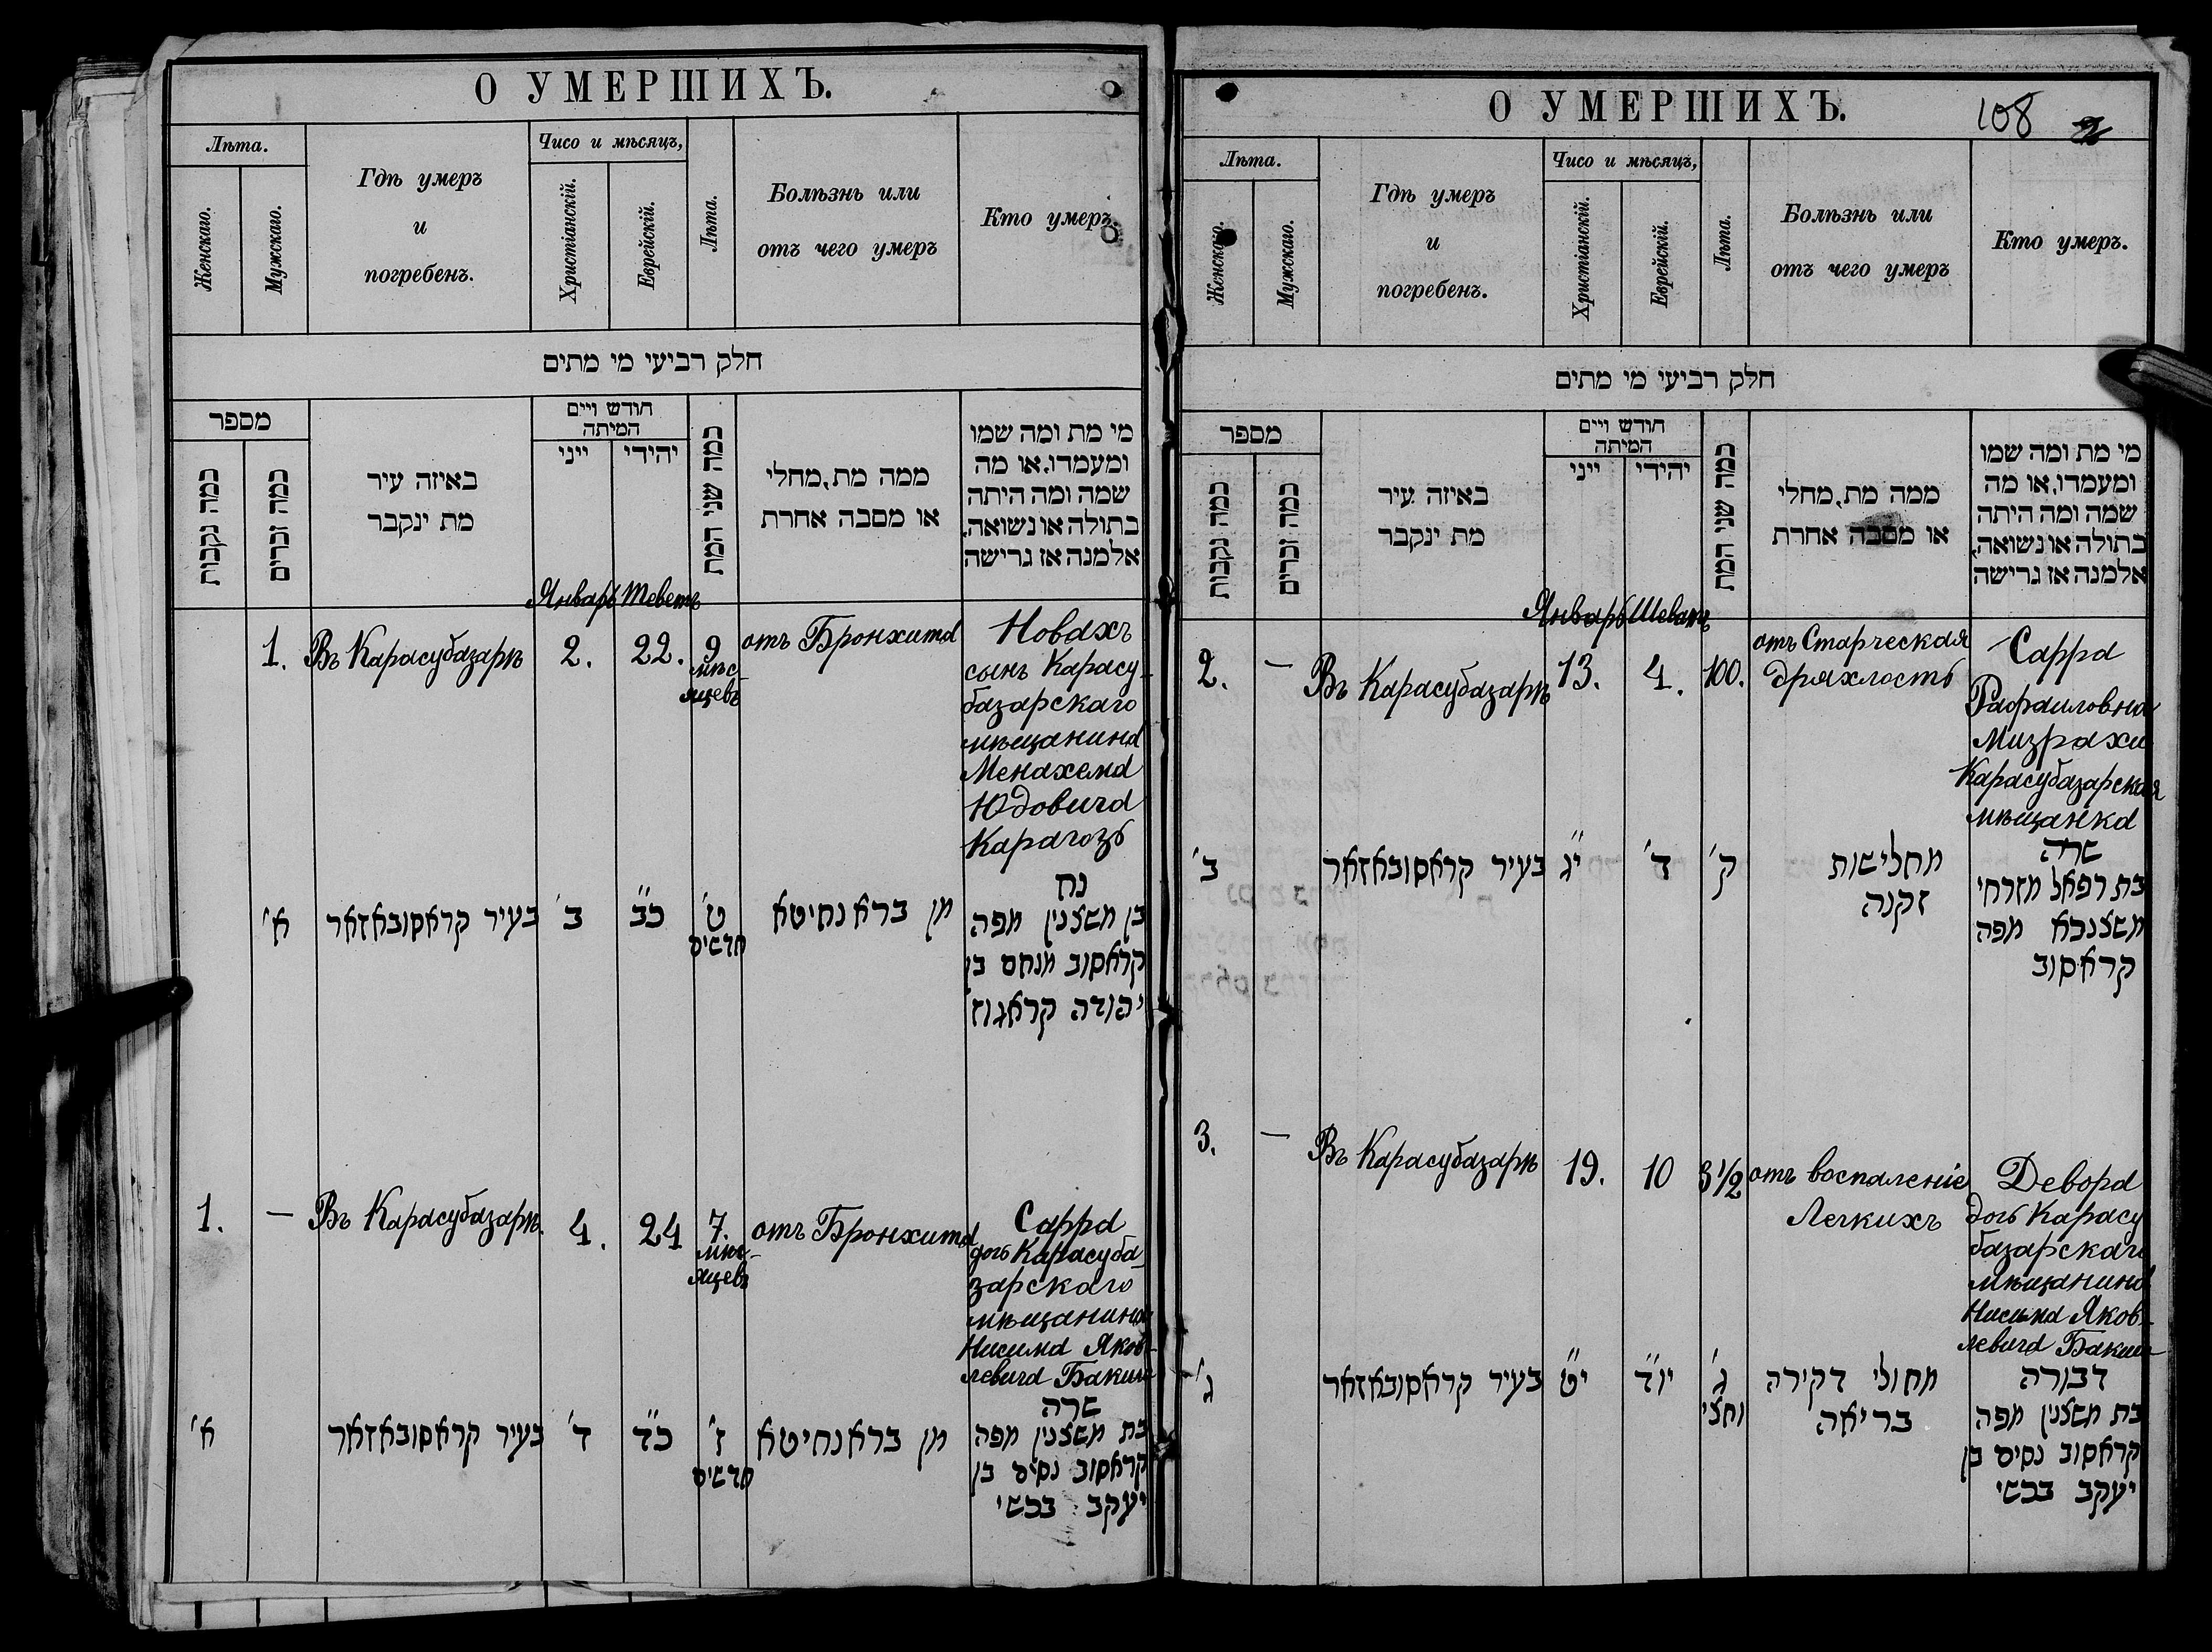 О УМЕРШИХЪ.
Лѣта.
Женскаго.
Мужскаго.
Гдѣ умеръ
и
погребенъ.
Чисо и мѣсяцъ,
Христіанскій.
Еврейскій.
Лѣта.
Болѣзнь или
отъ чего умеръ
Кто умеръ.
חלק רביעי מי מתים
מספר
כמה נקבות
כמה זכרים
באיזה עיר
מת ינקבר
חודש ויים
המיתה
ייני
יהידי
כמה שני המת
ממה מת, מחלי
או מסבה אחרת
מי מת ומה שמו
ומעמדו, או מה
שמה ומה היתה
בתולה או נשואה,
אלמנה אז גרישה
Январь Теветъ
1. Въ Карасубазарѣ 2. 22. 9
мѣс
яцевъ
отъ Бронхита
Новахъ
сынъ Карасу-
базарскаго
мѣщанина
Менахема
Юдовича
Карагозъ
א' בעיר קראסובאזאר ב' כ"ב ט'
חדשים
מן בראנחיטא
נח
בן משצנין מפה
קראסוב מנחם בן
יהודה קראגוז
1. — Въ Карасубазарѣ. 4. 24 7.
мѣс-
яцевъ
отъ Бронхита
Сарра
дочь Карасуба-
зарскаго
мѣщанина
Нисима Яков-
левича Бакши
א' בעיר קראסובאזאר ד' כ"ד ז'
חדשים
מן בראנחיטא
שרה
בת משצנין מפה
קראסוב נסים בן
יעקב בכשי
О УМЕРШИХЪ.
108
Лѣта.
Женскаго.
Мужскаго.
Гдѣ умеръ
и
погребенъ.
Чисо и мѣсяцъ,
Христіанскій.
Еврейскій.
Лѣта.
Болѣзнь или
отъ чего умеръ
Кто умеръ.
חלק רביעי מי מתים
מספר
כמה נקבות
כמה זכרים
באיזה עיר
מת ינקבר
חודש ויים
המיתה
ייני
יהידי
כמה שני המת
ממה מת, מחלי
או מסבה אחרת
מי מת ומה שמו
ומעמדו, או מה
שמה ומה היתה
בתולה או נשואה,
אלמנה אז גרישה
Январь Шеватъ
2. — Въ Карасубазарѣ 13. 4. 100.
отъ Старческая
дряхлость
Сарра
Рафаиловна
Мизрахи
Карасубазарская
мѣщанка
ב' בעיר קראסובאזאר י"ג ד' ק'
מחלישות
זקנה
שרה
בת רפאל מזרחי
משצנכא מפה
קראסוב
3. — Въ Карасубазарѣ 19. 10 3 1/2
отъ воспаленіе
Легкихъ
Девора
дочь Карасу
базарскаго
мѣщанина
Нисима Яков-
левича Бакши
ג' בעיר קראסובאזאר י"ט יו"ד ג'
וחצי
מחולי דקירה
בריאה
דבורה
בת משצנין מפה
קראסוב נסים בן
יעקב בכשי